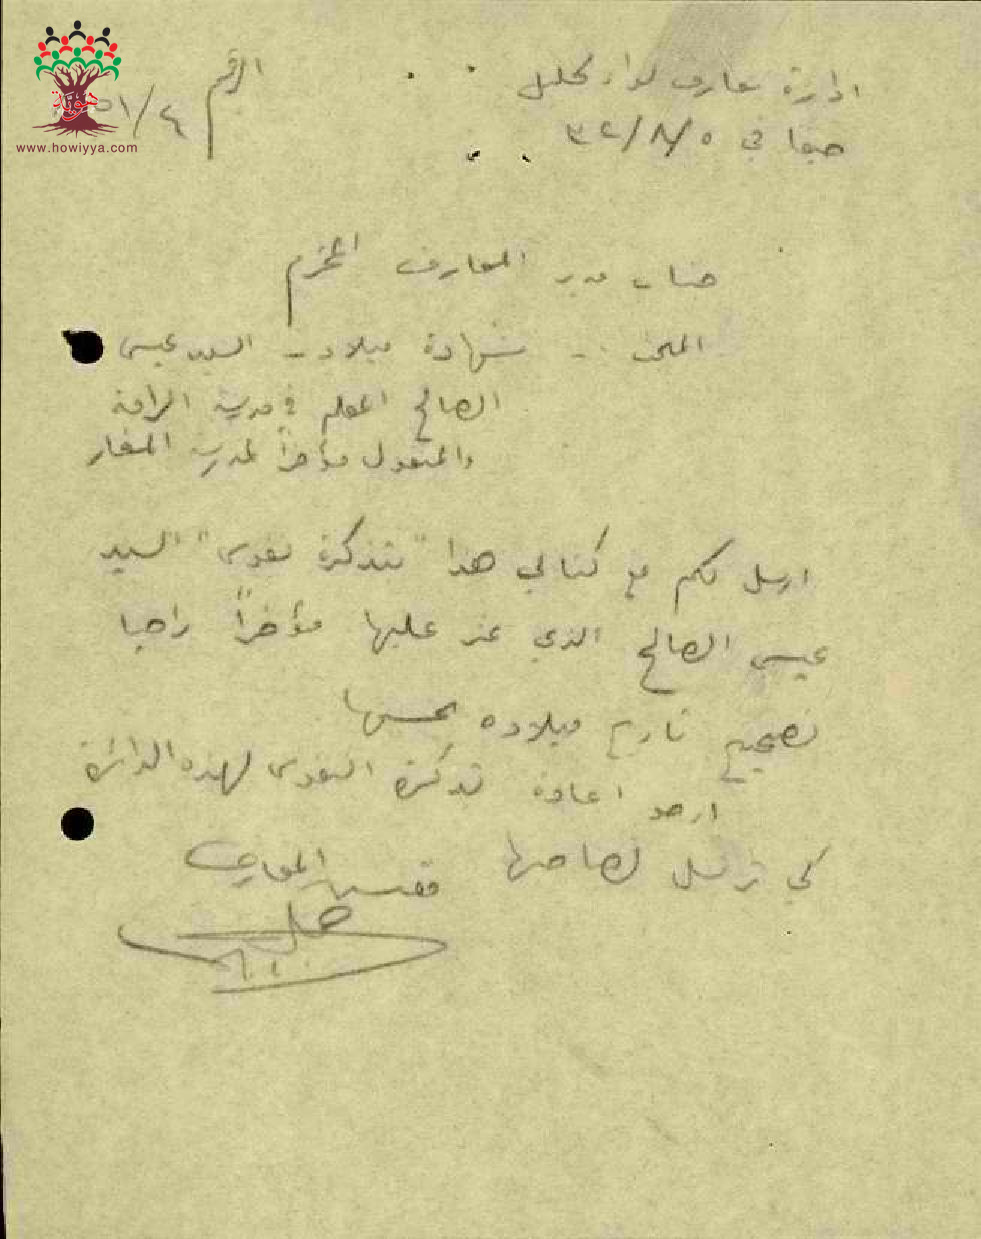 هوية
www.howiyya.com
ادارة معارف لواء الجليل
الرقم ٥١/٤
حيفا في ٣٢/٨/٥
جناب مدير المعارف المحترم
الملف :- شهادة ميلاد - السيد عيسى
الصالح المعلم في مدرسة الرامة
والمنقول مؤخراً لمدرسة المغار
ارسل لكم مع كتابي هذا "تذكرة نفوس" السيد
عيسى الصالح الذي عثر عليها مؤخراً راجيا
تصحيح تاريخ ميلاده بحسبها
ارجو اعادة تذكرة النفوس لهذه الدائرة
كي ترسل لصاحبها
مفتش المعارف